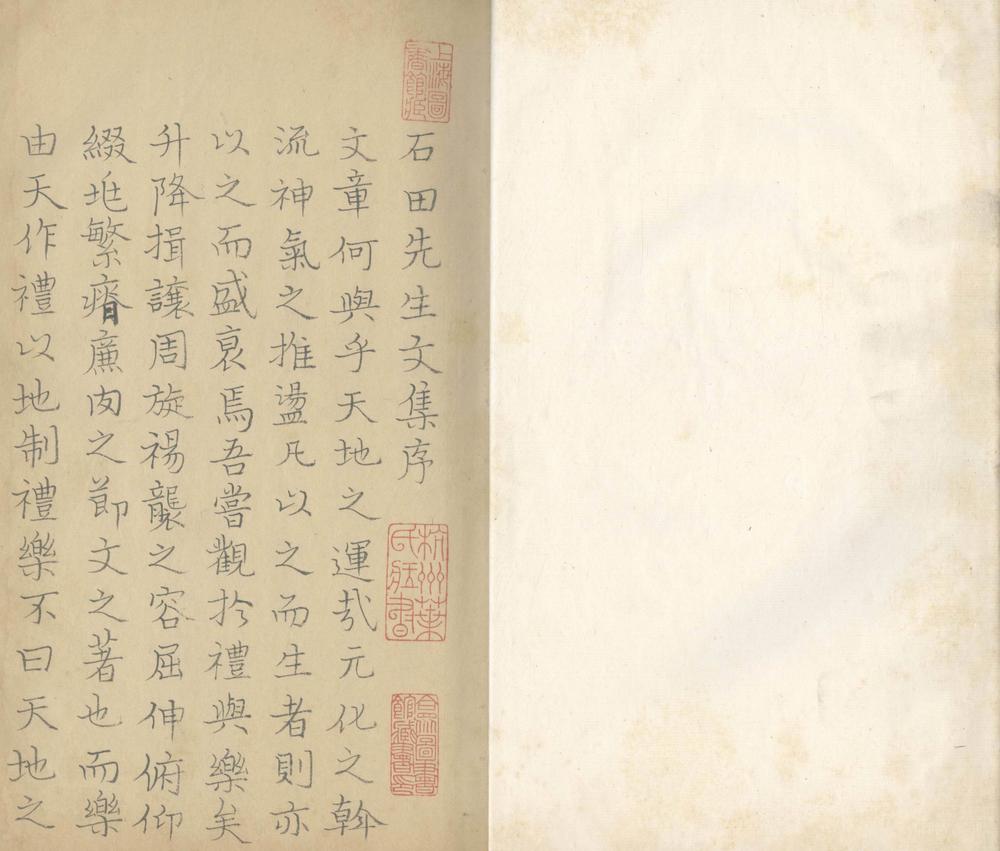 石田先生文集序
文章何與乎天地之運哉元化之斡
流神氣之推盪凡以之而生者則亦
以之而盛衰焉吾嘗觀於禮與樂矣
升降揖讓周旋裼襲之容屈伸俯仰
綴兆繁瘠廉肉之節文之著也而樂
由天作禮以地制禮樂不曰天地之
上海圖書館藏
杭州葉氏藏書
合眾圖書館藏書印